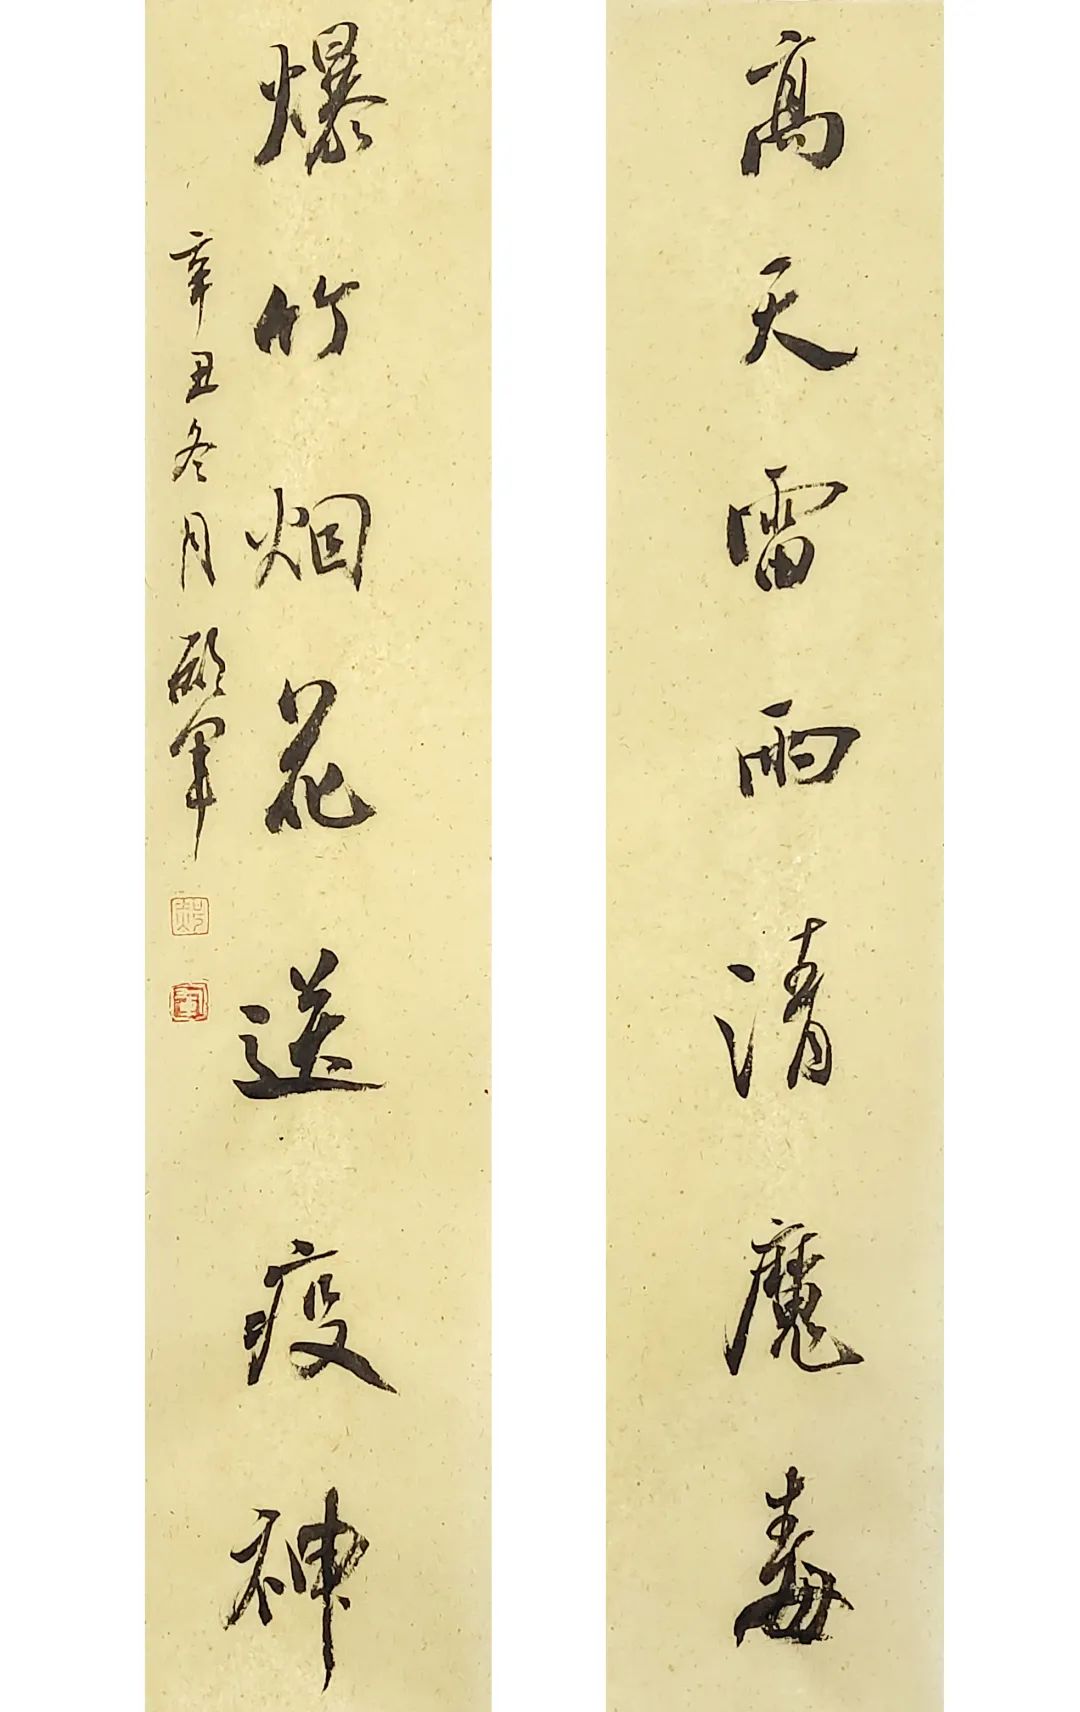 高天雷雨清魔毒
爆竹烟花送疫神
辛丑冬月